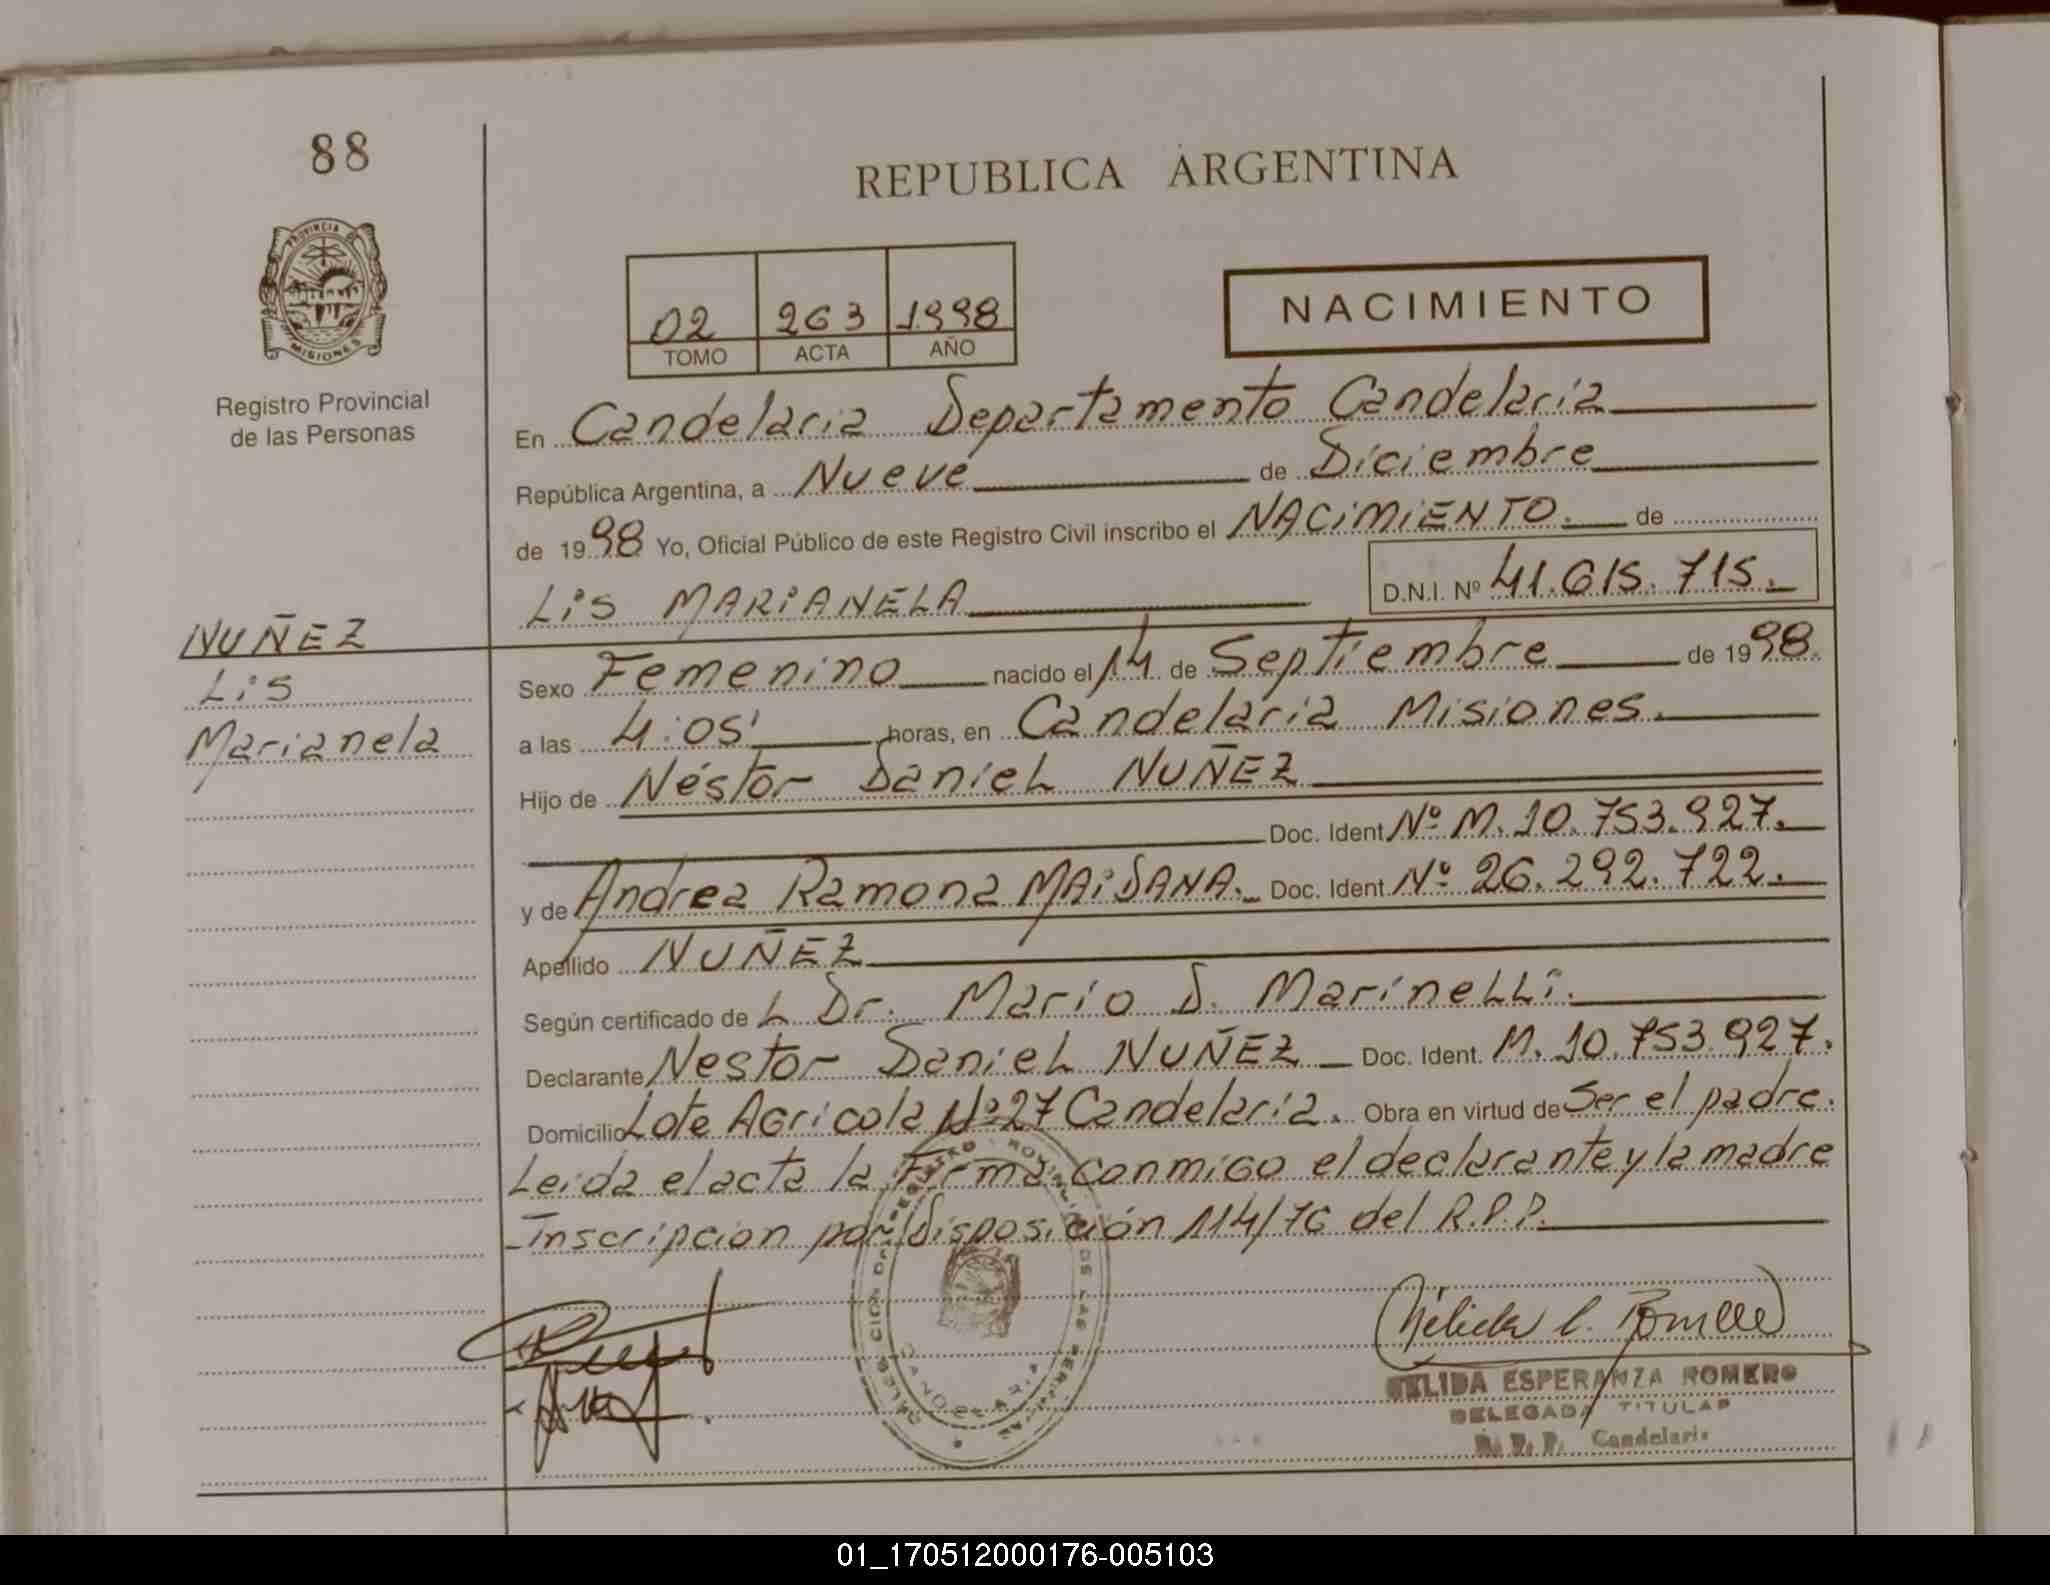 88
REPUBLICA ARGENTINA
PROVINCIA DE
MISIONES
Registro Provincial
de las Personas
02 263 1998
TOMO ACTA AÑO
NACIMIENTO
En Candelaria Departamento Candelaria
República Argentina, a Nueve de Diciembre
de 1998 Yo, Oficial Público de este Registro Civil inscribo el NACIMIENTO. de
LIS MARIANELA D.N.I. Nº 41.615.715.
NUÑEZ
Lis
Marianela
Sexo Femenino nacido el 14 de Septiembre de 1998.
a las 4:05' horas, en Candelaria Misiones.
Hijo de Néstor Daniel NUÑEZ
Doc. Ident Nº M. 10.753.927.
y de Andrea Ramona MAIDANA. Doc. Ident Nº 26.292.722.
Apellido NUÑEZ
Según certificado de L Dr. Mario D. Marinelli.
Declarante Nestor Daniel NUÑEZ Doc. Ident. M. 10.753.927.
Domicilio Lote Agricola Nº 27 Candelaria. Obra en virtud de Ser el padre.
Leida el acta la Firma conmigo el declarante y la madre
-Inscripcion por Disposición 114/76 del R.P.P.
NELIDA ESPERANZA ROMERO
DELEGADA TITULAR
R. P. P. Candelaria
01_170512000176-005103